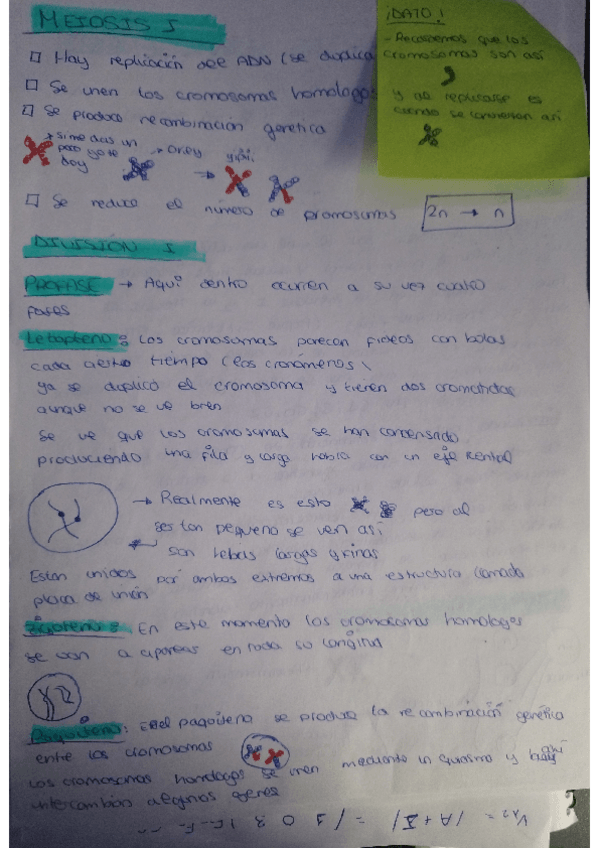 MEIOSIS I
□ Hay replicación del ADN (se duplica
□ Se unen los cromosomas homologos
□ Se produce recombinación genetica
→ si me das un
poco yo te
doy
→ Okey
→
□ Se reduce el número de cromosomas 2n → n
¡DATO!
- Recordemos que los
cromosomas son así
y al replicarse es
cuando se convierten así
DIVISIÓN I
PROFASE → Aquí dentro ocurren a su vez cuatro
fases
Letopteno: Los cromosomas parecen fideos con bolas
cada cierto tiempo (los cromómeros)
ya se duplicó el cromosoma y tienen dos cromatidas
aunque no se ve bien
Se ve que los cromosomas se han condensado
produciendo una fila y larga habra con un eje
→ Realmente es esto pero al
ser tan pequeño se ven así
son hebras largas y finas
Estan unidos por ambos extremos a una estructura llamada
placa de unión
Zigoteno: En este momento los cromosomas homologos
se van a aparear en toda su longitud
Paquiteno: En el paquiteno se produce la recombinación genética
entre los cromosomas
Los cromosomas homologos se unen mediante un quiasma y ahi
intercambian algunos genes